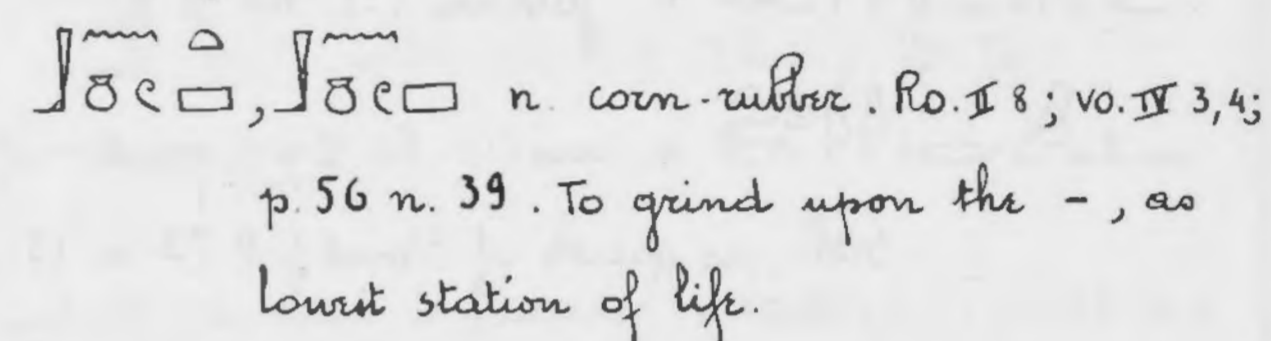 𓃀𓈖𓏌𓏲𓏏𓊌, 𓃀𓈖𓏌𓏲𓊌 n. corn-rubber. Ro. II 8; vo. IV 3,4;
p. 56 n. 39. To grind upon the -, as
lowest station of life.